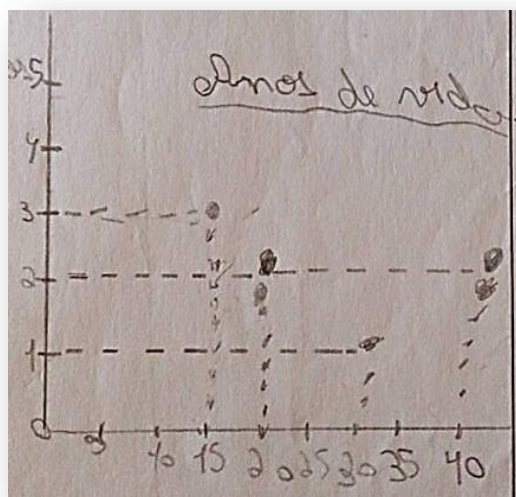 Anos de vida
5
4
3
2
1
0 5 10 15 20 25 30 35 40